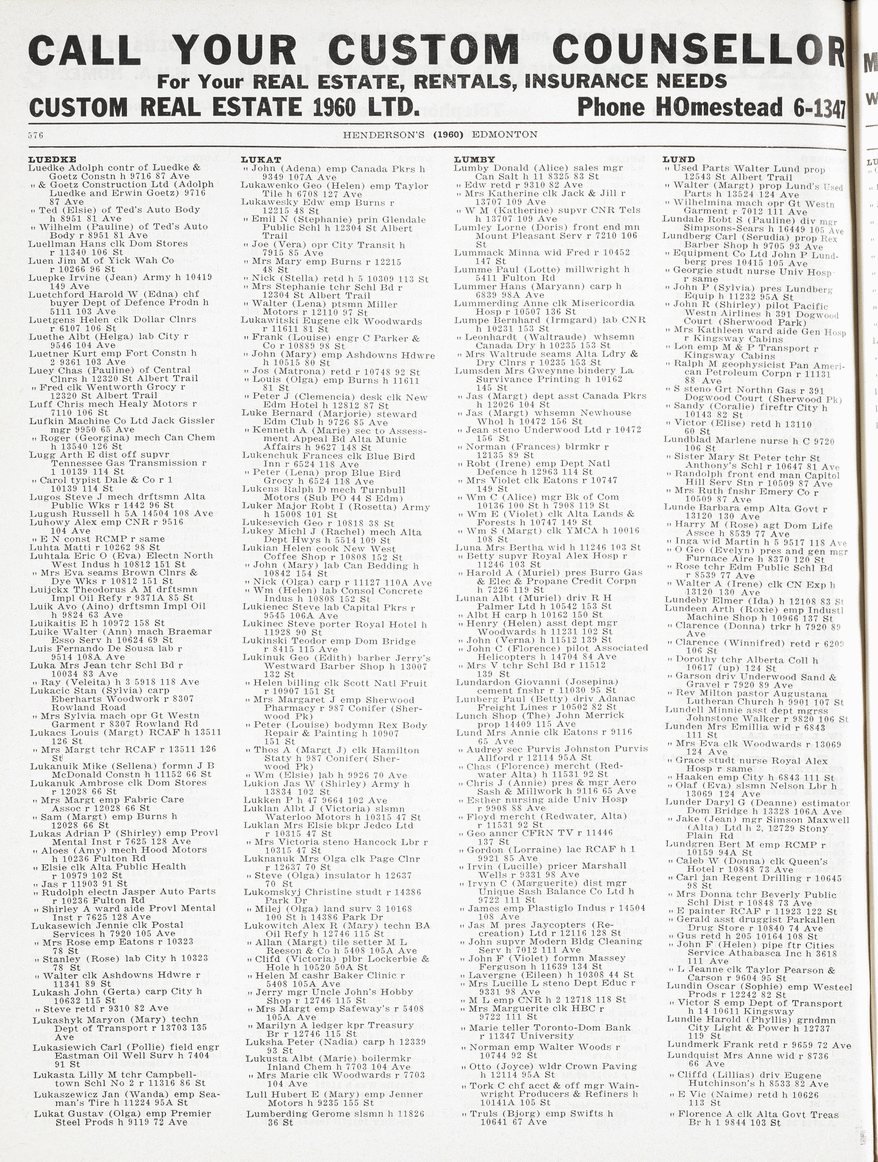 CALL YOUR CUSTOM COUNSELLOR
For Your REAL ESTATE, RENTALS, INSURANCE NEEDS
CUSTOM REAL ESTATE 1960 LTD. Phone HOmestead 6-1347
576 HENDERSON'S (1960) EDMONTON
LUEDKE
Luedke Adolph contr of Luedke &
Goetz Constn h 9716 87 Ave
" & Goetz Construction Ltd (Adolph
Luedke and Erwin Goetz) 9716
87 Ave
" Ted (Elsie) of Ted's Auto Body
h 8951 81 Ave
" Wilhelm (Pauline) of Ted's Auto
Body r 8951 81 Ave
Luellman Hans clk Dom Stores
r 11340 106 St
Luen Jim M of Yick Wah Co
r 10266 96 St
Luepke Irvine (Jean) Army h 10419
149 Ave
Luetchford Harold W (Edna) chf
buyer Dept of Defence Prodn h
5111 103 Ave
Luetgens Helen clk Dollar Clnrs
r 6107 106 St
Luethe Albt (Helga) lab City r
9546 104 Ave
Luetner Kurt emp Fort Constn h
2 9361 103 Ave
Luey Chas (Pauline) of Central
Clnrs h 12320 St Albert Trail
" Fred clk Wentworth Grocy r
12320 St Albert Trail
Luff Chris mech Healy Motors r
7110 106 St
Lufkin Machine Co Ltd Jack Gissler
mgr 9950 65 Ave
" Roger (Georgina) mech Can Chem
h 13540 126 St
Lugg Arth E dist off supvr
Tennessee Gas Transmission r
1 10139 114 St
" Carol typist Dale & Co r 1
10139 114 St
Lugos Steve J mech drftsmn Alta
Public Wks r 1442 96 St
Lugush Russell h 5A 14504 108 Ave
Luhowy Alex emp CNR r 9516
104 Ave
" E N const RCMP r same
Luhta Matti r 10262 98 St
Luhtala Eric O (Eva) Electn North
West Indus h 10812 151 St
" Mrs Eva seams Brown Clnrs &
Dye Wks r 10812 151 St
Luijckx Theodorus A M drftsmn
Impl Oil Refy r 9371A 85 St
Luik Avo (Aino) drftsmn Impl Oil
h 9824 63 Ave
Luikaitis E h 10972 158 St
Luike Walter (Ann) mach Braemar
Esso Serv h 10624 69 St
Luis Fernando De Sousa lab r
9514 108A Ave
Luka Mrs Jean tchr Schl Bd r
10034 83 Ave
" Ray (Veleita) h 3 5918 118 Ave
Lukacic Stan (Sylvia) carp
Eberharts Woodwork r 8307
Rowland Road
" Mrs Sylvia mach opr Gt Westn
Garment r 8307 Rowland Rd
Lukacs Louis (Margt) RCAF h 13511
126 St
" Mrs Margt tchr RCAF r 13511 126
St
Lukanuik Mike (Sellena) formn J B
McDonald Constn h 11152 66 St
Lukanuk Ambrose clk Dom Stores
r 12028 66 St
" Mrs Margt emp Fabric Care
Assoc r 12028 66 St
" Sam (Margt) emp Burns h
12028 66 St
Lukas Adrian P (Shirley) emp Provl
Mental Inst r 7625 128 Ave
" Aloes (Amy) mech Hood Motors
h 10236 Fulton Rd
" Elsie clk Alta Public Health
r 10979 102 St
" Jas r 11903 91 St
" Rudolph electn Jasper Auto Parts
r 10236 Fulton Rd
" Shirley A ward aide Provl Mental
Inst r 7625 128 Ave
Lukasewich Jennie clk Postal
Services h 7920 105 Ave
" Mrs Rose emp Eatons r 10323
78 St
" Stanley (Rose) lab City h 10323
78 St
" Walter clk Ashdowns Hdwre r
11341 89 St
Lukash John (Gerta) carp City h
10632 115 St
" Steve retd r 9310 82 Ave
Lukashyk Maryon (Mary) techn
Dept of Transport r 13703 135
Ave
Lukasiewich Carl (Pollie) field engr
Eastman Oil Well Surv h 7404
91 St
Lukasta Lilly M tchr Campbell-
town Schl No 2 r 11316 86 St
Lukaszewicz Jan (Wanda) emp Sea-
man's Tire h 11224 95A St
Lukat Gustav (Olga) emp Premier
Steel Prods h 9119 72 Ave
LUKAT
" John (Adena) emp Canada Pkrs h
9349 107A Ave
Lukawenko Geo (Helen) emp Taylor
Tile h 6708 127 Ave
Lukawesky Edw emp Burns r
12215 48 St
" Emil N (Stephanie) prin Glendale
Public Schl h 12304 St Albert
Trail
" Joe (Vera) opr City Transit h
7915 85 Ave
" Mrs Mary emp Burns r 12215
48 St
" Nick (Stella) retd h 5 10309 113 St
" Mrs Stephanie tchr Schl Bd r
12304 St Albert Trail
" Walter (Lena) ptsmn Miller
Motors r 12110 97 St
Lukawitski Eugene clk Woodwards
r 11611 81 St
" Frank (Louise) engr C Parker &
Co r 10889 98 St
" John (Mary) emp Ashdowns Hdwre
h 10515 80 St
" Jos (Matrona) retd r 10748 92 St
" Louis (Olga) emp Burns h 11611
81 St
" Peter J (Clemencia) desk clk New
Edm Hotel h 12812 87 St
Luke Bernard (Marjorie) steward
Edm Club h 9726 85 Ave
" Kenneth A (Marie) sec to Assess-
ment Appeal Bd Alta Munic
Affairs h 9627 148 St
Lukenchuk Frances clk Blue Bird
Inn r 6524 118 Ave
" Peter (Lena) prop Blue Bird
Grocy h 6524 118 Ave
Lukens Ralph D mech Turnbull
Motors (Sub PO 44 S Edm)
Luker Major Robt I (Rosetta) Army
h 15008 101 St
Lukesevich Geo r 10818 38 St
Lukey Michl J (Rachel) mech Alta
Dept Hwys h 5514 109 St
Lukian Helen cook New West
Coffee Shop r 10808 152 St
" John (Mary) lab Can Bedding h
10842 154 St
" Nick (Olga) carp r 11127 110A Ave
" Wm (Helen) lab Consol Concrete
Indus h 10808 152 St
Lukieniec Steve lab Capital Pkrs r
9545 106A Ave
Lukinec Steve porter Royal Hotel h
11928 90 St
Lukinski Teodor emp Dom Bridge
r 8415 115 Ave
Lukiniuk Geo (Edith) barber Jerry's
Westward Barber Shop h 13007
132 St
" Helen billing clk Scott Natl Fruit
r 10907 151 St
" Mrs Margaret J emp Sherwood
Pharmacy r 987 Conifer (Sher-
wood Pk)
" Peter (Louise) bodymn Rex Body
Repair & Painting h 10907
151 St
" Thos A (Margt J) clk Hamilton
Staty h 987 Conifer (Sher-
wood Pk)
" Wm (Elsie) lab h 9926 70 Ave
Lukion Jas W (Shirley) Army h
13834 102 St
Lukken P h 47 9664 102 Ave
Luklan Albt J (Victoria) slsmn
Waterloo Motors h 10315 47 St
Luklan Mrs Elsie bkpr Jedco Ltd
r 10315 47 St
" Mrs Victoria steno Hancock Lbr r
10315 47 St
Luknanuk Mrs Olga clk Page Clnr
r 12637 70 St
" Steve (Olga) insulator h 12637
70 St
Lukomskyj Christine studt r 14386
Park Dr
" Milej (Olga) land surv 3 10168
100 St h 14386 Park Dr
Lukowich Alex R (Mary) techn BA
Oil Refy h 12746 115 St
" Allan (Margt) tile setter M L
Reeson & Co h 5408 105A Ave
" Clifd (Victoria) plbr Lockerbie &
Hole h 10520 50A St
" Helen M cashr Baker Clinic r
5408 105A Ave
" Jerry mgr Uncle John's Hobby
Shop r 12746 115 St
" Mrs Margt emp Safeway's r 5408
105A Ave
" Marilyn A ledger kpr Treasury
Br r 12746 115 St
Luksha Peter (Nadia) carp h 12339
93 St
Lukusta Albt (Marie) boilermkr
Inland Chem h 7703 104 Ave
" Mrs Marie clk Woodwards r 7703
104 Ave
Lull Hubert E (Mary) emp Jenner
Motors h 9235 155 St
Lumberding Gerome slsmn h 11826
36 St
LUMBY
Lumby Donald (Alice) sales mgr
Can Salt h 11 8325 83 St
" Edw retd r 9310 82 Ave
" Mrs Katherine clk Jack & Jill r
13707 109 Ave
" W M (Katherine) supvr CNR Tels
h 13707 109 Ave
Lumley Lorne (Doris) front end mn
Mount Pleasant Serv r 7210 106
St
Lummack Minna wid Fred r 10452
147 St
Lumme Paul (Lotte) millwright h
5411 Fulton Rd
Lummer Hans (Maryann) carp h
6839 98A Ave
Lummerding Anne clk Misericordia
Hosp r 10507 136 St
Lumpe Bernhard (Irmgard) lab CNR
h 10231 153 St
" Leonhardt (Waltraude) whsemn
Canada Dry h 10235 153 St
" Mrs Waltrude seams Alta Ldry &
Dry Clnrs r 10235 153 St
Lumsden Mrs Gweynne bindery La
Survivance Printing h 10162
145 St
" Jas (Margt) dept asst Canada Pkrs
h 12026 104 St
" Jas (Margt) whsemn Newhouse
Whol h 10472 156 St
" Jean steno Underwood Ltd r 10472
156 St
" Norman (Frances) blrmkr r
12135 89 St
" Robt (Irene) emp Dept Natl
Defence h 12963 114 St
" Mrs Violet clk Eatons r 10747
149 St
" Wm C (Alice) mgr Bk of Com
10136 100 St h 7908 119 St
" Wm E (Violet) clk Alta Lands &
Forests h 10747 149 St
" Wm S (Margt) clk YMCA h 10016
108 St
Luna Mrs Bertha wid h 11246 103 St
" Betty supvr Royal Alex Hosp r
11246 103 St
" Harold A (Muriel) pres Burro Gas
& Elec & Propane Credit Corpn
h 7226 119 St
Lunan Albt (Muriel) driv R H
Palmer Ltd h 10542 153 St
" Albt H carp h 10162 150 St
" Henry (Helen) asst dept mgr
Woodwards h 11231 102 St
" John (Verna) h 11512 139 St
" John C (Florence) pilot Associated
Helicopters h 14704 84 Ave
" Mrs V tchr Schl Bd r 11512
139 St
Lundardon Giovanni (Josepina)
cement fnshr r 11030 95 St
Lunberg Paul (Betty) driv Adanac
Freight Lines r 10502 82 St
Lunch Shop (The) John Merrick
prop 14409 115 Ave
Lund Mrs Annie clk Eatons r 9116
65 Ave
" Audrey sec Purvis Johnston Purvis
Allford r 12114 95A St
" Chas (Florence) mercht (Red-
water Alta) h 11531 92 St
" Chris J (Annie) pres & mgr Aero
Sash & Millwork h 9116 65 Ave
" Esther nursing aide Univ Hosp
r 9908 88 Ave
" Floyd mercht (Redwater, Alta)
r 11531 92 St
" Geo anncr CFRN TV r 11446
137 St
" Gordon (Lorraine) lac RCAF h 1
9921 85 Ave
" Irvin (Lucille) pricer Marshall
Wells r 9331 98 Ave
" Irvyn C (Marguerite) dist mgr
Unique Sash Balance Co Ltd h
9722 111 St
" James emp Plastiglo Indus r 14504
108 Ave
" Jas M pres Jaycopters (Re-
creation) Ltd r 12116 128 St
" John supvr Modern Bldg Cleaning
Serv h 7012 111 Ave
" John F (Violet) formn Massey
Ferguson h 11639 134 St
" Lavergne (Eileen) h 10308 44 St
" Mrs Lucille L steno Dept Educ r
9331 98 Ave
" M L emp CNR h 2 12718 118 St
" Mrs Marguerite clk HBC r
9722 111 St
" Marie teller Toronto-Dom Bank
r 11347 University
" Norman emp Walter Woods r
10744 92 St
" Otto (Joyce) wldr Crown Paving
h 12114 95A St
" Tork C chf acct & off mgr Wain-
wright Producers & Refiners h
10141A 105 St
" Truls (Bjorg) emp Swifts h
10641 67 Ave
LUND
" Used Parts Walter Lund prop
12543 St Albert Trail
" Walter (Margt) prop Lund's Used
Parts h 13524 124 Ave
" Wilhelmina mach opr Gt Westn
Garment r 7012 111 Ave
Lundale Robt S (Pauline) div mgr
Simpsons-Sears h 16449 105 Ave
Lundberg Carl (Serudia) prop Rex
Barber Shop h 9705 93 Ave
" Equipment Co Ltd John P Lund-
berg pres 10415 105 Ave
" Georgie studt nurse Univ Hosp
r same
" John P (Sylvia) pres Lundberg
Equip h 11232 95A St
" John R (Shirley) pilot Pacific
Westn Airlines h 391 Dogwood
Court (Sherwood Park)
" Mrs Kathleen ward aide Gen Hosp
r Kingsway Cabins
" Lon emp M & P Transport r
Kingsway Cabins
" Ralph M geophysicist Pan Ameri-
can Petroleum Corpn r 11131
88 Ave
" S steno Grt Northn Gas r 391
Dogwood Court (Sherwood Pk)
" Sandy (Coralie) fireftr City h
10143 82 St
" Victor (Elise) retd h 13110
60 St
Lundblad Marlene nurse h C 9720
106 St
" Sister Mary St Peter tchr St
Anthony's Schl r 10647 81 Ave
" Randolph front end man Capitol
Hill Serv Stn r 10509 87 Ave
" Mrs Ruth fnshr Emery Co r
10509 87 Ave
Lunde Barbara emp Alta Govt r
13120 130 Ave
" Harry M (Rose) agt Dom Life
Assce h 8539 77 Ave
" Inga wid Martin h 5 9517 118 Ave
" O Geo (Evelyn) pres and gen mgr
Furnace Aire h 8370 120 St
" Rose tchr Edm Public Schl Bd
r 8539 77 Ave
" Walter A (Irene) clk CN Exp h
13120 130 Ave
Lundeby Elmer (Ida) h 12108 83 St
Lundeen Arth (Roxie) emp Industl
Machine Shop h 10966 137 St
" Clarence (Donna) trkr h 7920 89
Ave
" Clarence (Winnifred) retd r 6205
106 St
" Dorothy tchr Alberta Coll h
10617 (up) 124 St
" Garson driv Underwood Sand &
Gravel r 7920 89 Ave
" Rev Milton pastor Augustana
Lutheran Church h 9901 107 St
Lundell Minnie asst dept mgrss
Johnstone Walker r 9820 106 St
Lunden Mrs Emillia wid r 6843
111 St
" Mrs Eva clk Woodwards r 13069
124 Ave
" Grace studt nurse Royal Alex
Hosp r same
" Haaken emp City h 6843 111 St
" Olaf (Eva) slsmn Nelson Lbr h
13069 124 Ave
Lunder Daryl G (Deanne) estimator
Dom Bridge h 13328 106A Ave
" Jake (Jean) mgr Simson Maxwell
(Alta) Ltd h 2, 12729 Stony
Plain Rd
Lundgren Bert M emp RCMP r
10159 94A St
" Caleb W (Donna) clk Queen's
Hotel r 10848 73 Ave
" Carl jan Regent Drilling r 10645
98 St
" Mrs Donna tchr Beverly Public
Schl Dist r 10848 73 Ave
" E painter RCAF r 11923 122 St
" Gerald asst druggist Parkallen
Drug Store r 10840 74 Ave
" Gus retd h 205 10164 108 St
" John F (Helen) pipe ftr Cities
Service Athabasca Inc h 3618
111 Ave
" L Jeanne clk Taylor Pearson &
Carson r 9604 95 St
Lundin Oscar (Sophie) emp Westeel
Prods r 12242 82 St
" Victor S emp Dept of Transport
h 14 10611 Kingsway
Lundle Harold (Phyllis) grndmn
City Light & Power h 12737
119 St
Lundmerk Frank retd r 9659 72 Ave
Lundquist Mrs Anne wid r 8736
66 Ave
" Cliffd (Lillias) driv Eugene
Hutchinson's h 8533 82 Ave
" E Vic (Naime) retd h 10626
113 St
" Florence A clk Alta Govt Treas
Br h 1 9844 103 St